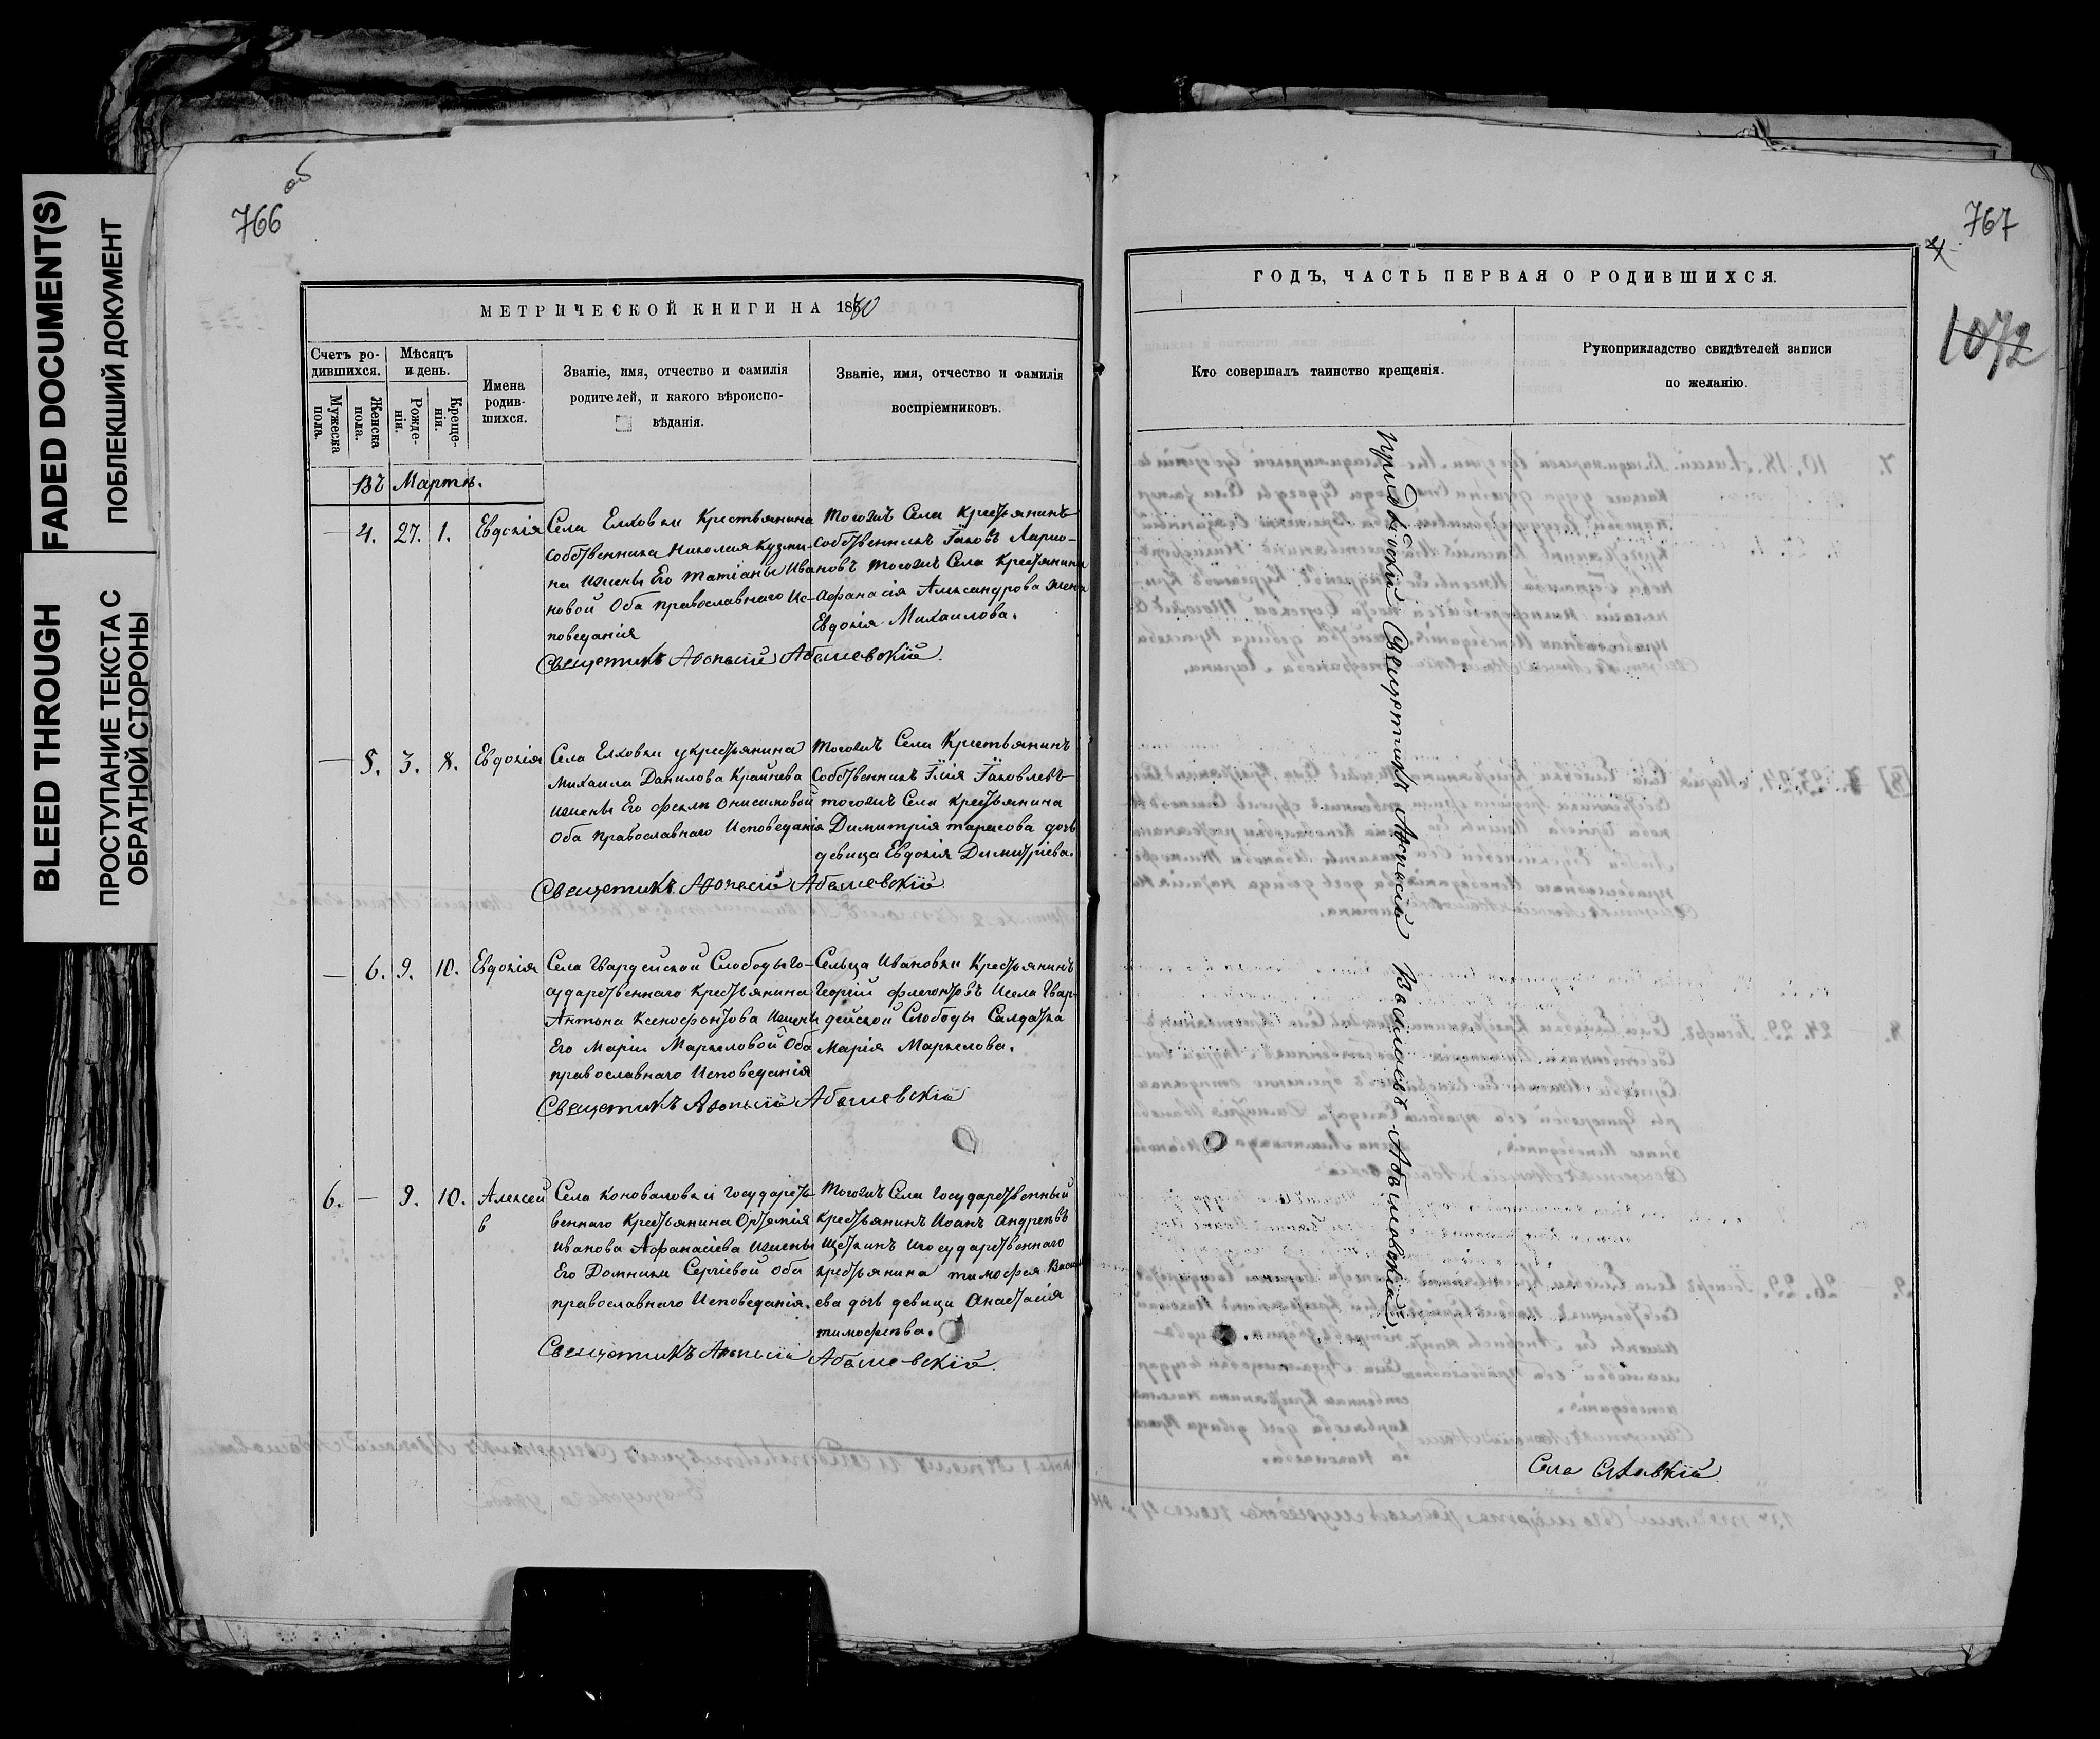 FADED DOCUMENT(S)
ПОБЛЕКШИЙ ДОКУМЕНТ
BLEED THROUGH
ПРОСТУПАНИЕ ТЕКСТА С
ОБРАТНОЙ СТОРОНЫ
766 об
МЕТРИЧЕСКОЙ КНИГИ НА 1880
Счетъ ро-
дившихся.
Мужеска
пола.
Женска
пола.
Мѣсяцъ
и день.
Рожде-
нія.
Креще-
нія.
Имена
родив-
шихся.
Званіе, имя, отчество и фамилія
родителей, и какого вѣроиспо-
вѣданія.
Званіе, имя, отчество и фамилія
воспріемниковъ.
Въ Мартѣ.
— 4. 27. 1. Евдокія
Села Елховки Крестьянина
Собственника Николая Кузми-
на Ижены Его Татіаны Ива
новой Оба православнаго Ис-
поведанія
Тогожъ Села Крестьянинъ
Собственникъ Іаковъ Ларио-
новъ тогожъ Села Крестьянина
Афанасія Александрова жена
Евдокія Михаилова.
Священникъ Афонасій Абашевскій.
— 5. 3. 8. Евдокія
Села Елховки у крестьянина
Михаила Данилова Крайнева
Ижены Его Феклы Онисимовой
Оба Православнаго Исповеданія
Тогожъ Села Крестьянинъ
Собственникъ Илія Іаковлевъ
тогожъ Села Крестьянина
Димитрія Тарасова дочь
девица Евдокія Димитріева.
Священникъ Афонасій Абашевскій
— 6. 9. 10. Евдокія
Села Гвардейской Слободы Го-
сударственнаго Крестьянина
Антона Ксенофонтова Ижены
Его Маріи Маркеловой Оба
православнаго Исповеданія
Сельца Ивановки Крестьянинъ
Георгій Флегонтовъ Исела Гвар-
дейской Слободы Салдатка
Марія Маркелова.
Священникъ Афонасій Абашевскій
6. — 9. 10. Алексей
в
Села Коноваловки Государст-
веннаго Крестьянина Ортемія
Иванова Афанасіева Ижены
Его Домники Сергіевой оба
православнаго Исповеданія.
Тогожъ Села Государственный
Крестьянинъ Иоанъ Андреевъ
Щеткинъ Игосударственнаго
Крестьянина Тимофея Васил
ева дочь девица Анастасія
тимофеева.
Священникъ Афонасій Абашевскій.
767
1072
ГОДЪ, ЧАСТЬ ПЕРВАЯ О РОДИВШИХСЯ.
Кто совершалъ таинство крещенія.
Рукоприкладство свидѣтелей записи
по желанію.
Священникъ Афонасій Васильевъ Абашевскій.